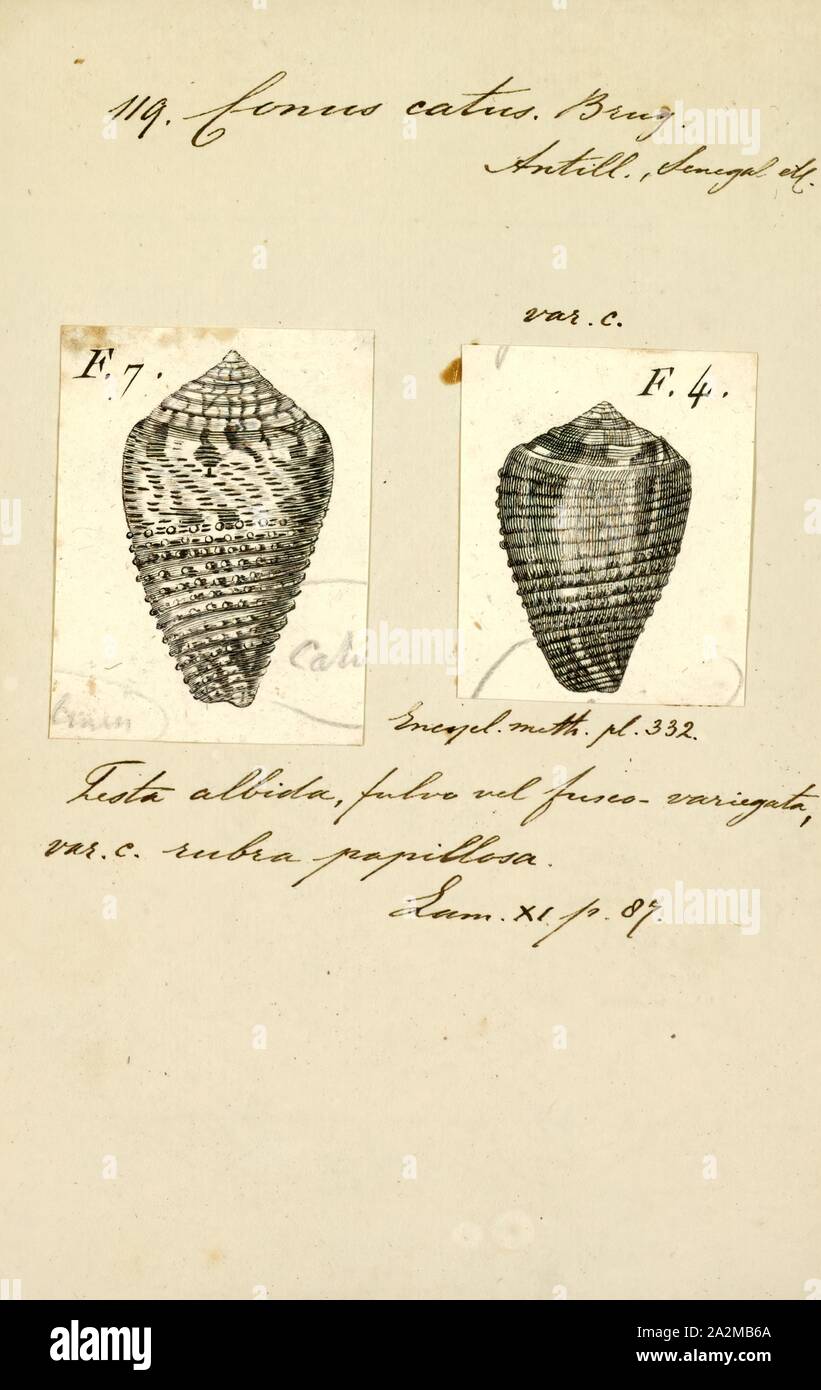 119. Conus catus. Brug.
Antill., Senegal etc.
var. c.
F. 7.
F. 4.
Encycl. meth. pl. 332.
Testa albida, fulvo vel fusco-variegata,
var. c. rubra papillosa.
Lam. XI. p. 87.
alamy
Image ID: 2A2MB6A
www.alamy.com